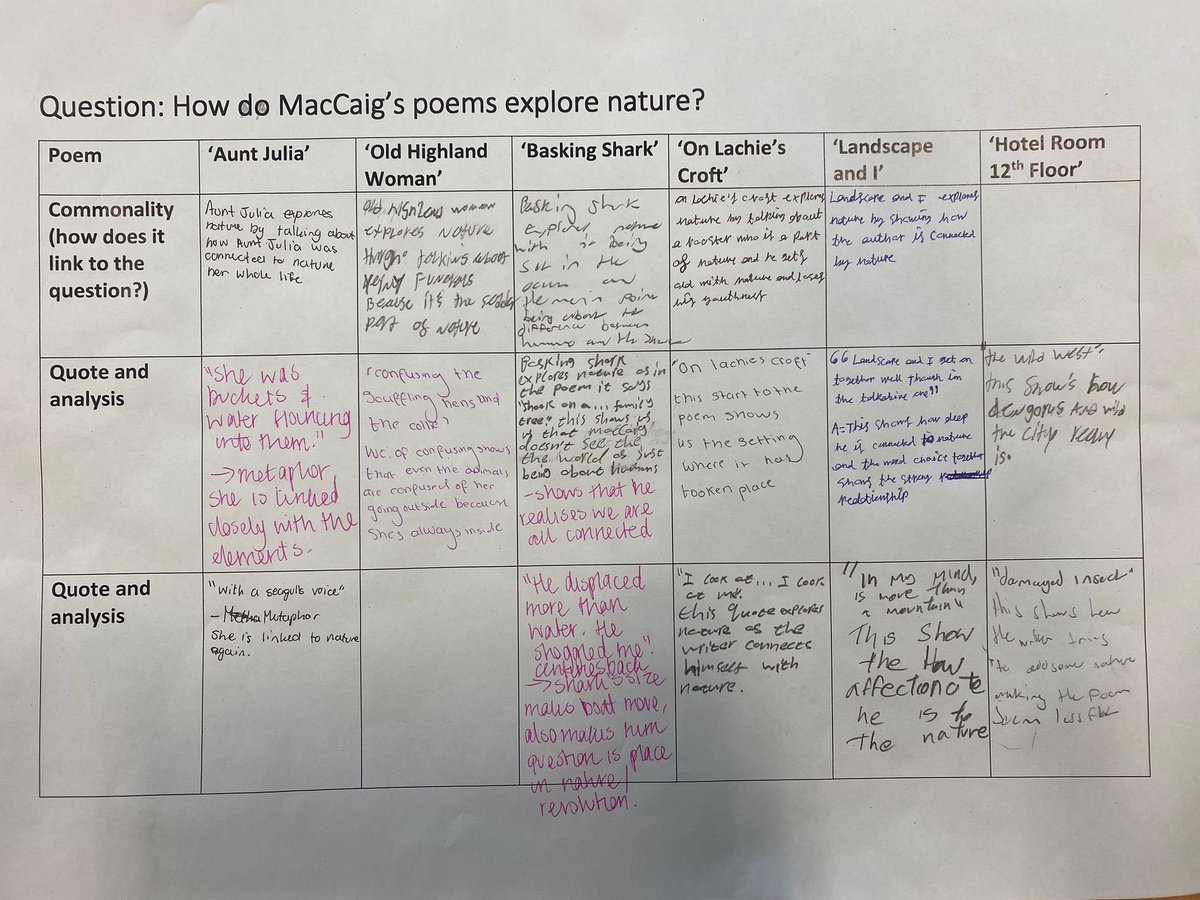 Question: How do MacCaig's poems explore nature?
Poem
'Aunt Julia'
'Old Highland
Woman'
'Basking Shark'
'On Lachie's
Croft'
'Landscape
and I'
'Hotel Room
12th Floor'
Commonality
(how does it
link to the
question?)
Aunt Julia explores
nature by talking about
how Aunt Julia was
connected to nature
her whole life
old highland woman
explores nature
talking about
Funerals
it's the
part of nature
Basking shark
explores nature
with it being
set in the
ocean and
the main point
being about the
difference between
humans and the
on lachie's croft explores
nature by talking about
a rooster who is a part
of nature and he gets
old with nature and loses
his
Landscape and I explores
nature by showing how
the author is connected
by nature
Quote and
analysis
"She was
buckets &
water flouncing
into them."
→ metaphor,
she is linked
closely with the
elements.
"confusing the
scuffling hens and
the collie"
W.C. of confusing shows
that even the animals
are confused of her
going outside because
she's always inside
Basking shark
explores nature as in
the poem it says
"shook on a... family
tree." this shows us
that maccaig
doesn't see the
the world as just
being about humans
-shows that he
realises we are
all connected
"On lachies croft"
this start to the
poem shows
us the setting
where it has
tooken place
66 Landscape and I get on
together well though im
the talkative one99
A=This shows how deep
he is connected to nature
and the word choice together
shows the strong
relationship
"the wild west".
this show's how
dengorus and wild
the city really
is.
Quote and
analysis
"With a seagulls voice"
- Metaphor
She is linked to nature
again.
"He displaced
more than
water. He
shoggled me".
centuries back
→ shark's size
makes boat move,
also makes him
question is place
in nature/
revolution.
"I look at... I look
at me.
this quote explores
nature as the
writer connects
himself with
nature.
"In my mind,
is more than
a mountain"
This show
the How
affectionote
he is to
the nature
"damaged insect"
this shows how
the writer tries
to add some nature
making the poem
seem less